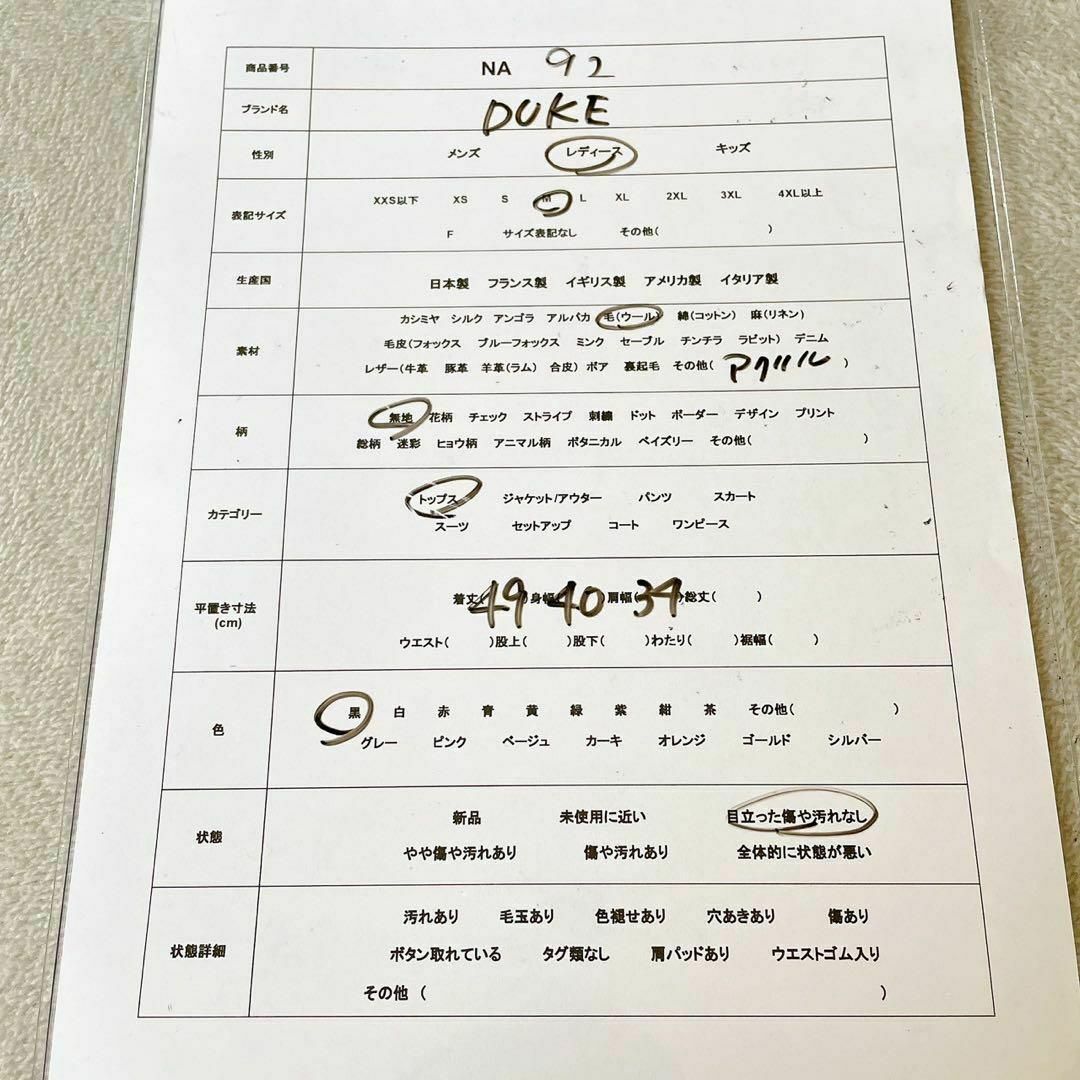 商品番号 NA 92
ブランド名 DUKE
性別 メンズ レディース キッズ
表記サイズ XXS以下 XS S M L XL 2XL 3XL 4XL以上
F サイズ表記なし その他( )
生産国 日本製 フランス製 イギリス製 アメリカ製 イタリア製
素材 カシミヤ シルク アンゴラ アルパカ 毛(ウール) 綿(コットン) 麻(リネン)
毛皮(フォックス ブルーフォックス ミンク セーブル チンチラ ラビット) デニム
レザー(牛革 豚革 羊革(ラム) 合皮) ボア 裏起毛 その他( アクリル )
柄 無地 花柄 チェック ストライプ 刺繍 ドット ボーダー デザイン プリント
総柄 迷彩 ヒョウ柄 アニマル柄 ボタニカル ペイズリー その他( )
カテゴリー トップス ジャケット/アウター パンツ スカート
スーツ セットアップ コート ワンピース
平置き寸法 着丈( 49 )身幅( 40 肩幅( 34 )総丈( )
(cm) ウエスト( )股上( )股下( )わたり( )裾幅( )
色 黒 白 赤 青 黄 緑 紫 紺 茶 その他( )
グレー ピンク ベージュ カーキ オレンジ ゴールド シルバー
状態 新品 未使用に近い 目立った傷や汚れなし
やや傷や汚れあり 傷や汚れあり 全体的に状態が悪い
状態詳細 汚れあり 毛玉あり 色褪せあり 穴あきあり 傷あり
ボタン取れている タグ類なし 肩パッドあり ウエストゴム入り
その他 ( )